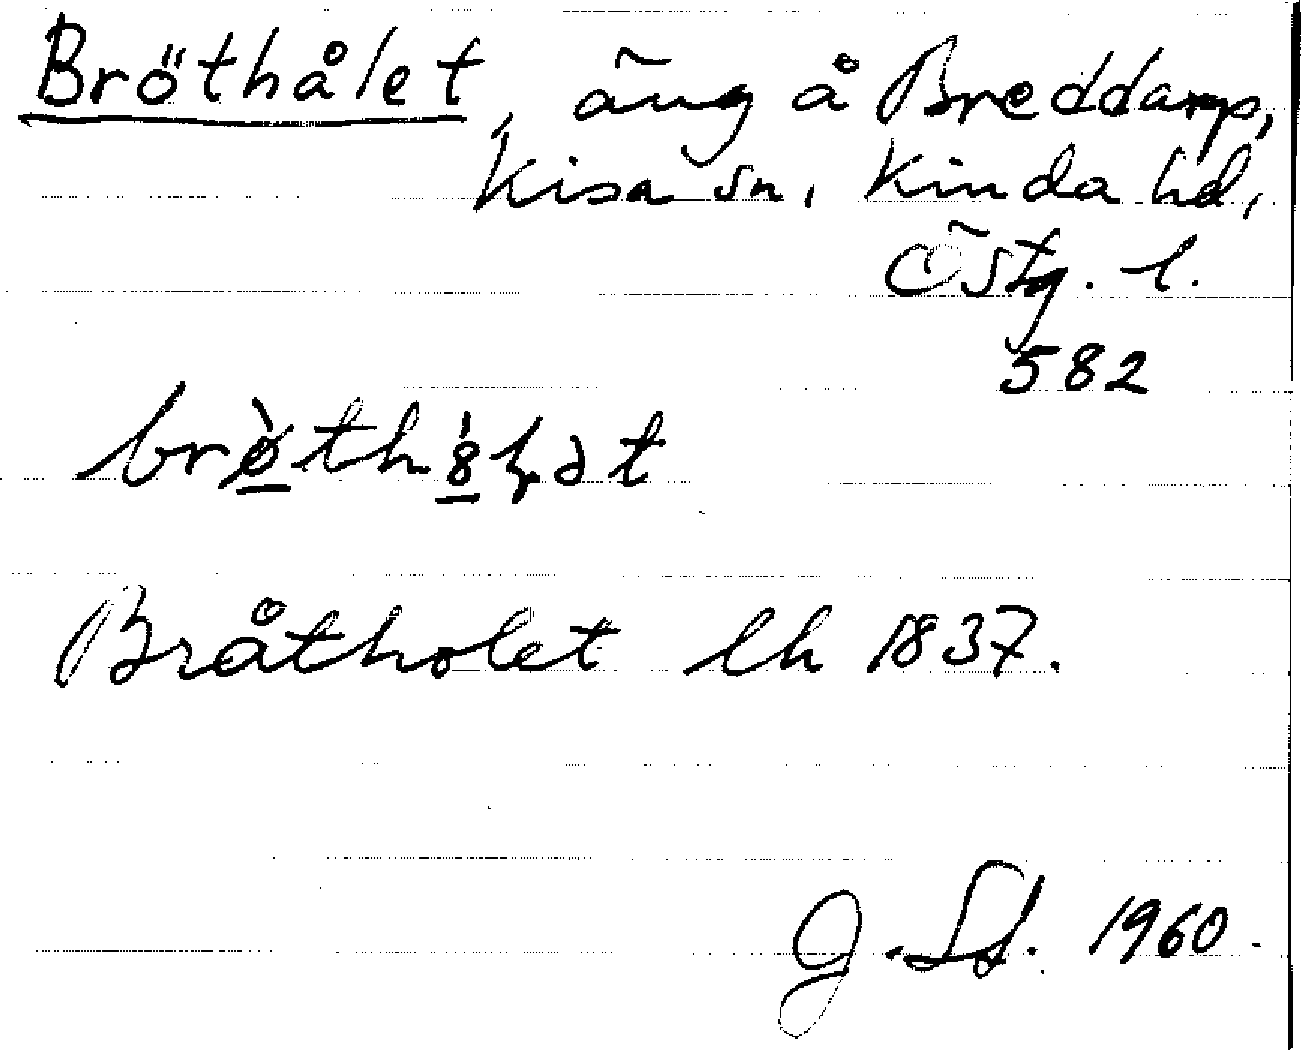 Bröthålet, äng å Breddamp,
Kisa sn, Kinda hd,
Östg. l.
582
Bråtholet lh 1837.
1960.